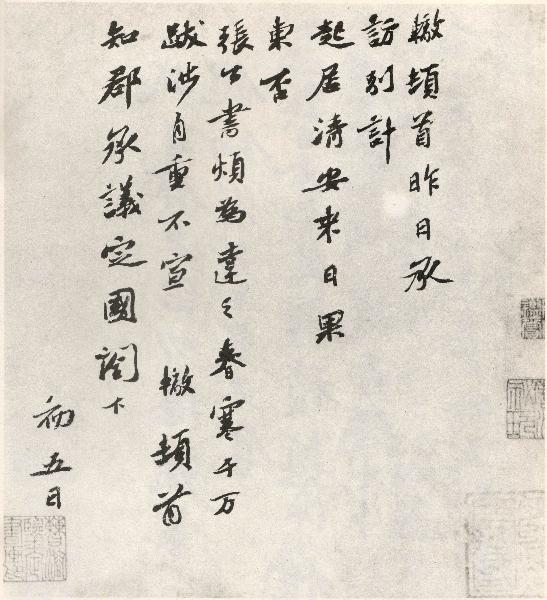 轍頓首昨日承
訪別計
起居清安来日果
東否
張公書煩為達之春寒千万
跋涉自重不宣　轍頓首
知郡承議定國閣下
初五日